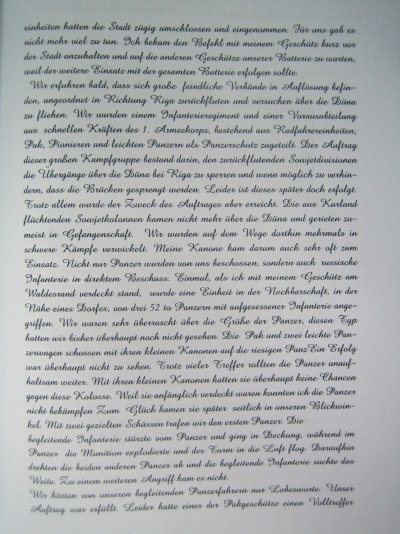 einheiten hatten die Stadt zügig umschlossen und eingenommen. Für uns gab es
nicht mehr viel zu tun. Ich bekam den Befehl mit meinem Geschütz kurz vor
der Stadt anzuhalten und auf die anderen Geschütze unserer Batterie zu warten,
weil der weitere Einsatz mit der gesamten Batterie erfolgen sollte.
Wir erfuhren bald, dass sich große feindliche Verbände in Auflösung befin-
den, ungeordnet in Richtung Riga zurückfluten und versuchen über die Düna
zu fliehen. Wir wurden einem Infanterieregiment und einer Vorausabteilung
aus schnellen Kräften des 1. Armeekorps, bestehend aus Radfahrereinheiten,
Pak, Pionieren und leichten Panzern als Panzerschutz zugeteilt. Der Auftrag
dieser großen Kampfgruppe bestand darin, den zurückflutenden Sowjetdivisionen
die Übergänge über die Düna bei Riga zu sperren und wenn möglich zu verhin-
dern, dass die Brücken gesprengt werden. Leider ist dieses später doch erfolgt.
Trotz allem wurde der Zweck des Auftrages aber erreicht. Die aus Kurland
flüchtenden Sowjetkolonnen kamen nicht mehr über die Düna und gerieten zu-
meist in Gefangenschaft. Wir wurden auf dem Wege dorthin mehrmals in
schwere Kämpfe verwickelt. Meine Kanone kam darum auch sehr oft zum
Einsatz. Nicht nur Panzer wurden von uns beschossen, sondern auch russische
Infanterie in direktem Beschuss. Einmal, als ich mit meinem Geschütz am
Waldesrand verdeckt stand, wurde eine Einheit in der Nachbarschaft, in der
Nähe eines Dorfes, von drei 52 to Panzern mit aufgesessener Infanterie ange-
griffen. Wir waren sehr überrascht über die Größe der Panzer, diesen Typ
hatten wir bisher überhaupt noch nicht gesehen. Die Pak und zwei leichte Pan-
zerwagen schossen mit ihren kleinen Kanonen auf die riesigen Panz Ein Erfolg
war überhaupt nicht zu sehen. Trotz vieler Treffer rollten die Panzer unauf-
haltsam weiter. Mit ihren kleinen Kanonen hatten sie überhaupt keine Chancen
gegen diese Kolosse. Weil sie anfänglich verdeckt waren konnten ich die Panzer
nicht bekämpfen Zum Glück kamen sie später seitlich in unseren Blickwin-
kel. Mit zwei gezielten Schüssen trafen wir den ersten Panzer. Die
begleitende Infanterie stürzte vom Panzer und ging in Deckung, während im
Panzer die Munition explodierte und der Turm in die Luft flog. Daraufhin
drehten die beiden anderen Panzer ab und die begleitende Infanterie suchte das
Weite. Zu einem weiteren Angriff kam es nicht.
Wir hörten von unseren begleitenden Panzerfahrern nur Lobesworte. Unser
Auftrag war erfüllt. Leider hatte eines der Pakgeschütze einen Volltreffer